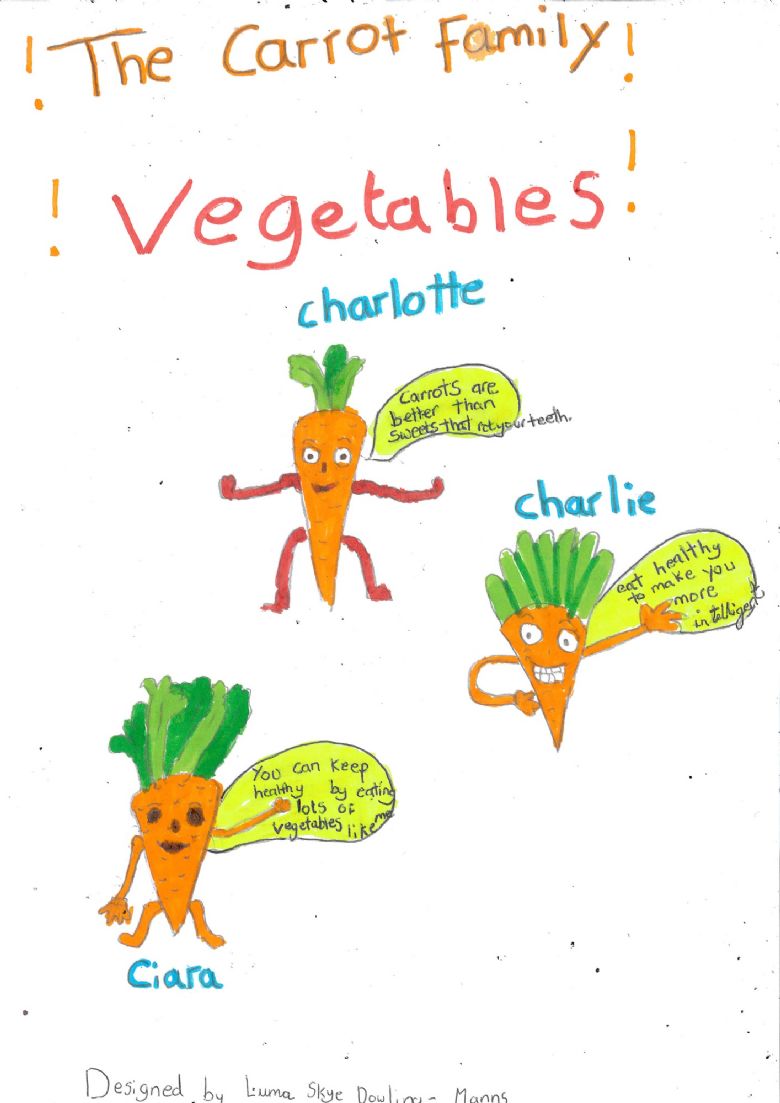 ! The Carrot Family !
! Vegetables !
charlotte
Carrots are
better than
sweets that rot your teeth.
charlie
eat healthy
to make you
more
intelligent
You can keep
healthy by eating
lots of
vegetables like me
Ciara
Designed by Luma Skye Dowling - Manns